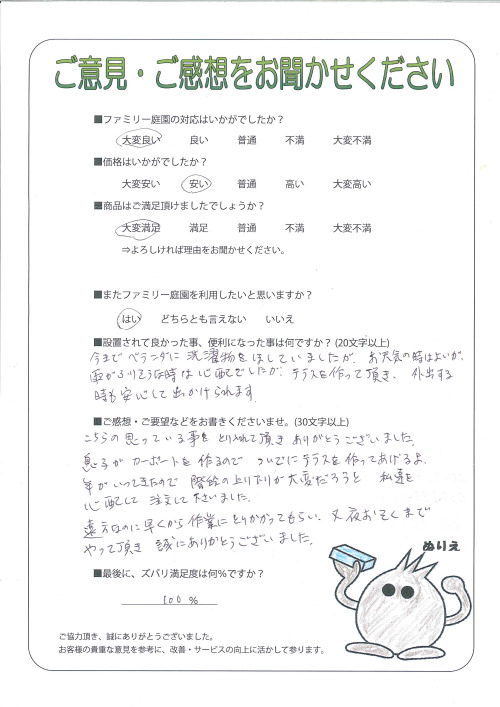 ご意見・ご感想をお聞かせください
■ファミリー庭園の対応はいかがでしたか？
大変良い 良い 普通 不満 大変不満
■価格はいかがでしたか？
大変安い 安い 普通 高い 大変高い
■商品はご満足頂けましたでしょうか？
大変満足 満足 普通 不満 大変不満
⇒よろしければ理由をお聞かせください。
■またファミリー庭園を利用したいと思いますか？
はい どちらとも言えない いいえ
■設置されて良かった事、便利になった事は何ですか？(20文字以上)
今までベランダに洗濯物をほしていましたが、お天気の時はよいが、
雨がふりそうな時は心配でしたが、テラスを作って頂き、外出する
時も安心して出かけられます。
■ご感想・ご要望などをお書きくださいませ。(30文字以上)
こちらの思っている事をとり入れて頂きありがとうございました。
息子がカーポートを作るので ついでにテラスを作ってあげるよ、
年がいってきたので 階段の上り下りが大変だろうと 私達を
心配して 注文して下さいました。
遠方なのに早くから作業にとりかかってもらい、又夜おそくまで
やって頂き 誠にありがとうございました。
ぬりえ
■最後に、ズバリ満足度は何％ですか？
100 ％
ご協力頂き、誠にありがとうございました。
お客様の貴重な意見を参考に、改善・サービスの向上に活かして参ります。